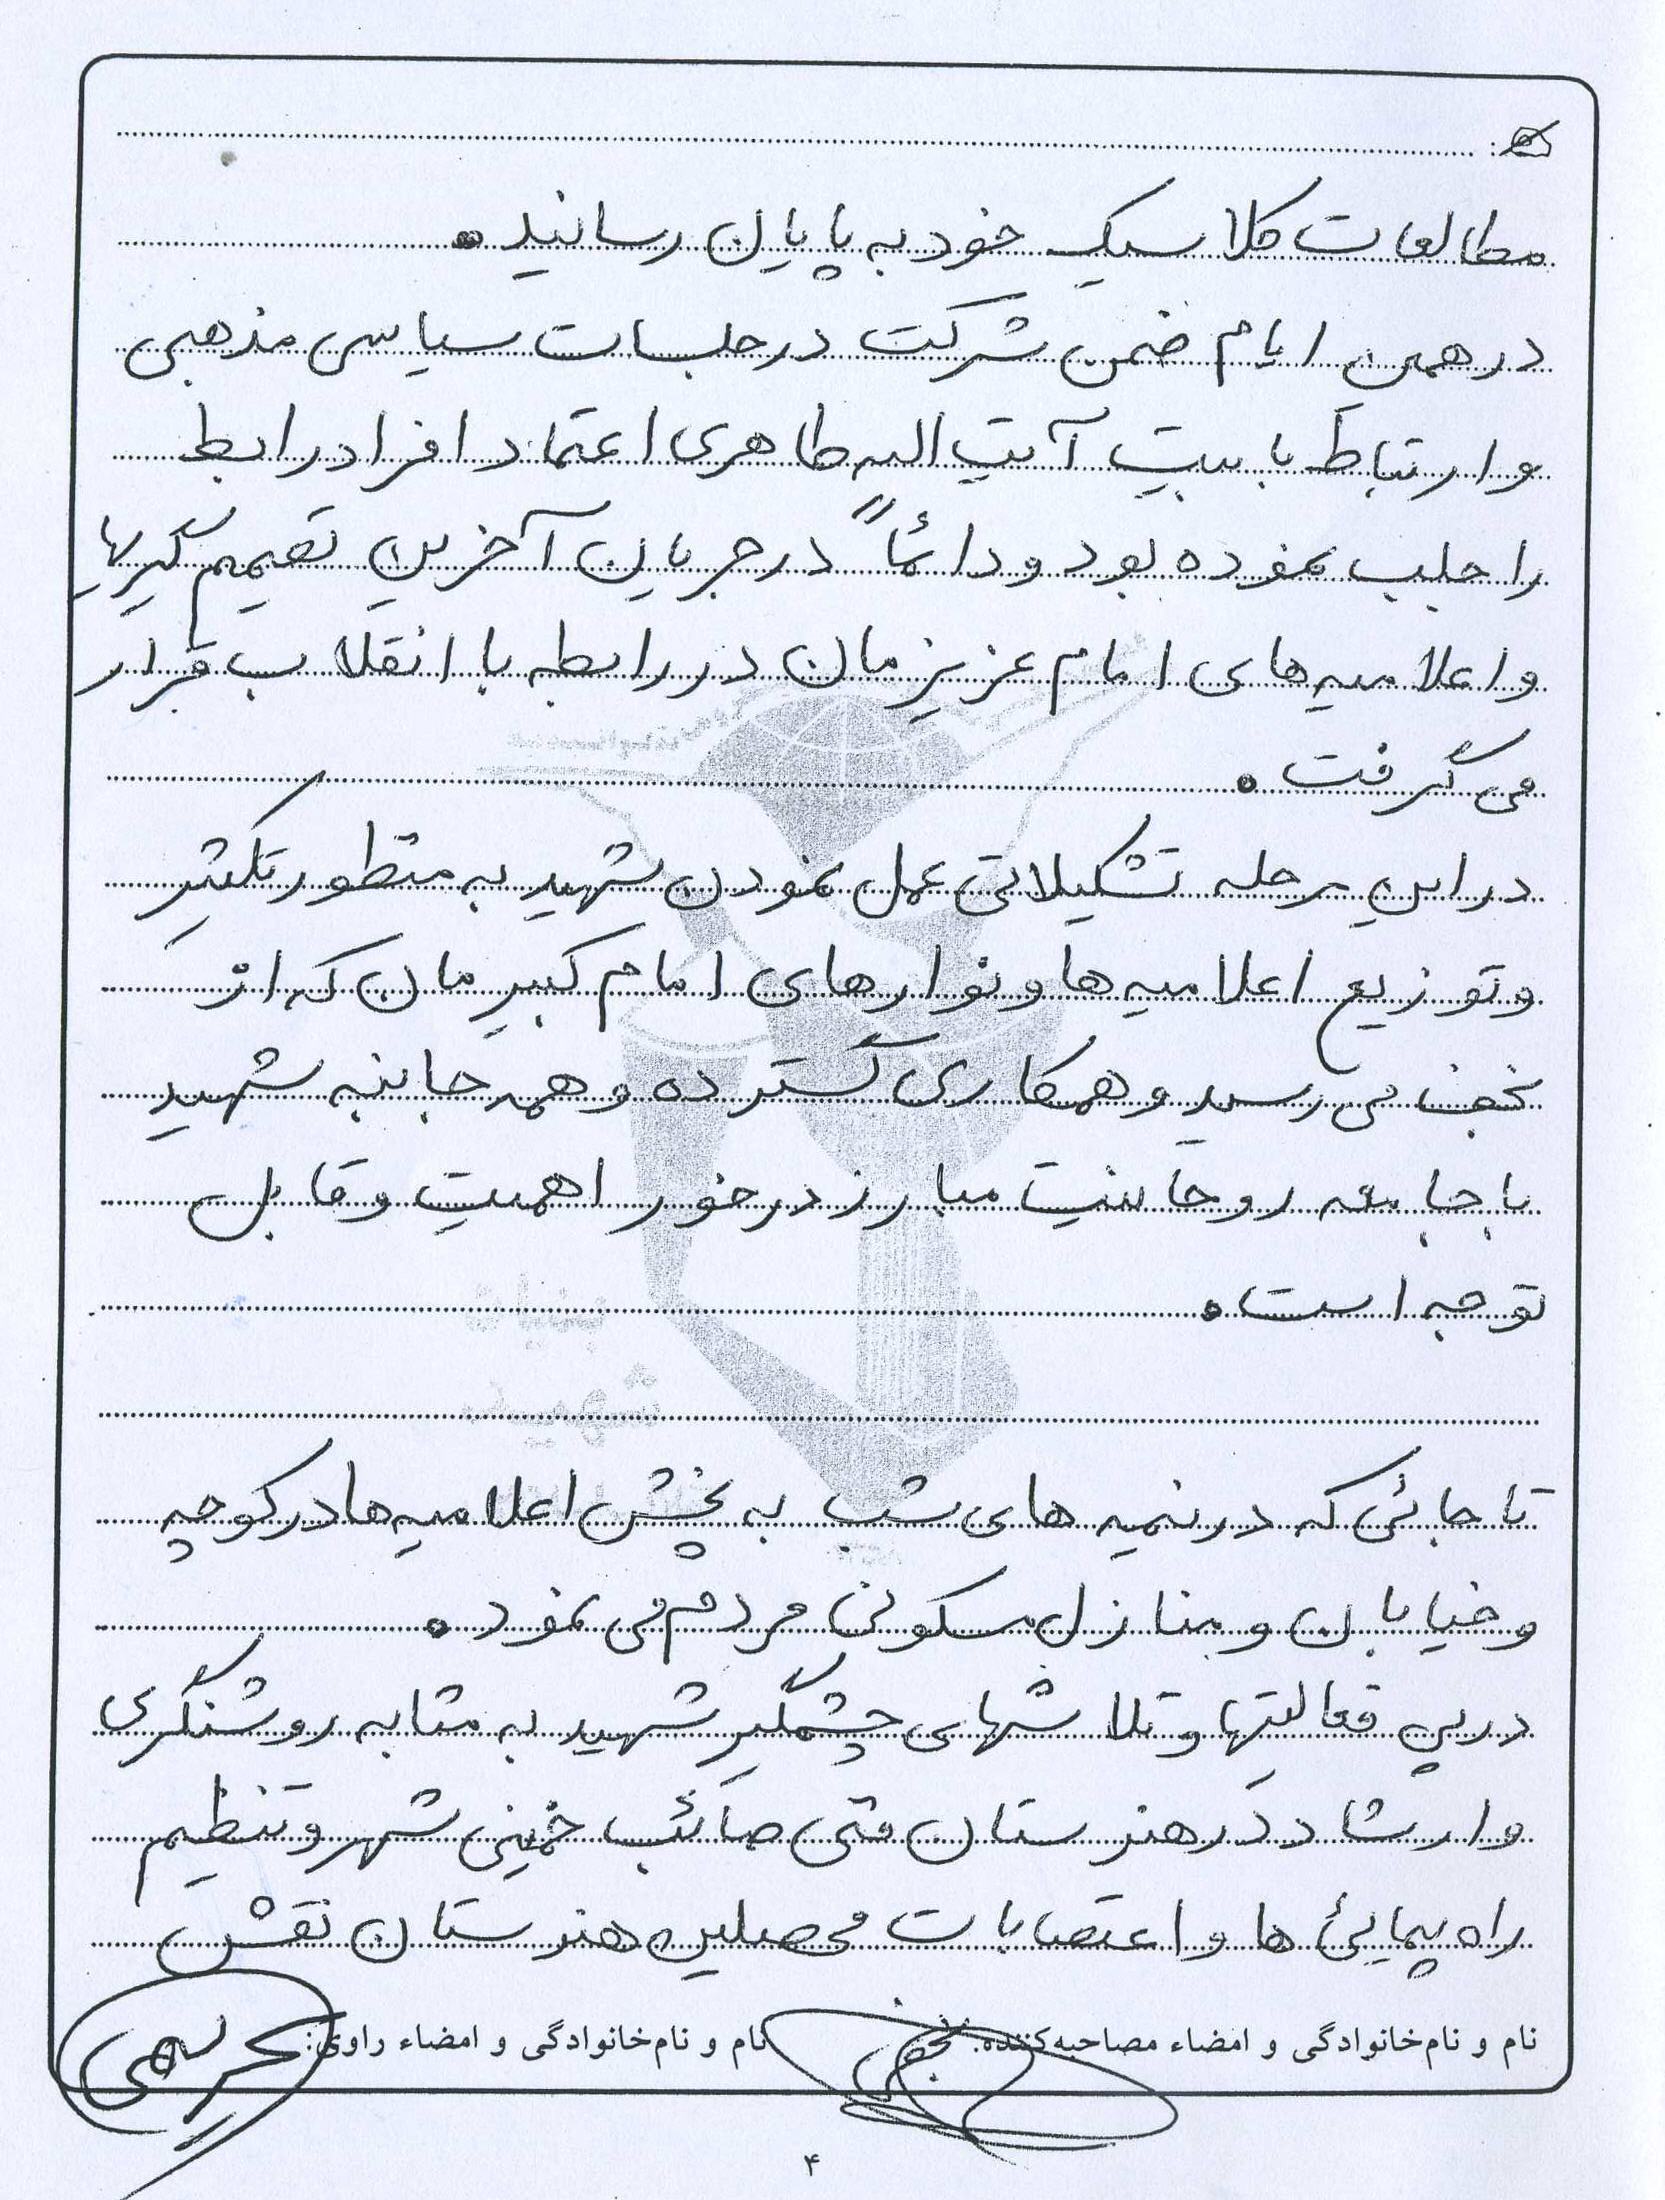 مطالعات کلاسیک خود به پایان رسانید.
در همین ایام ضمن شرکت در جلسات سیاسی مذهبی
و ارتباط با بیت آیت اله طاهری اعتماد افراد رابط
را جلب نموده بود و دائماً در جریان آخرین تصمیم گیریها
و اعلامیه های امام عزیزمان در رابطه با انقلاب قرار
می گرفت.
در این مرحله تشکیلاتی عمل نمودن شهید به منظور تکثیر
و توزیع اعلامیه ها و نوارهای امام کبیرمان که از
نجف می رسید و همکاری گسترده و همه جانبه شهید
با جامعه روحانیت مبارز در خور اهمیت و قابل
توجه است.
تا جائی که در نیمه های شب به پخش اعلامیه ها در کوچه
و خیابان و منازل مسکونی مردم می نمود.
در پی فعالیتها و تلاشهای چشمگیر شهید به مثابه روشنگری
و ارشاد در هنرستان فنی صائب خمینی شهر و تنظیم
راه پیمائی ها و اعتصابات محصلین هنرستان نقش
نام و نام‌خانوادگی و امضاء مصاحبه‌کننده: نام و نام‌خانوادگی و امضاء راوی:
۴
بنیاد
شهید